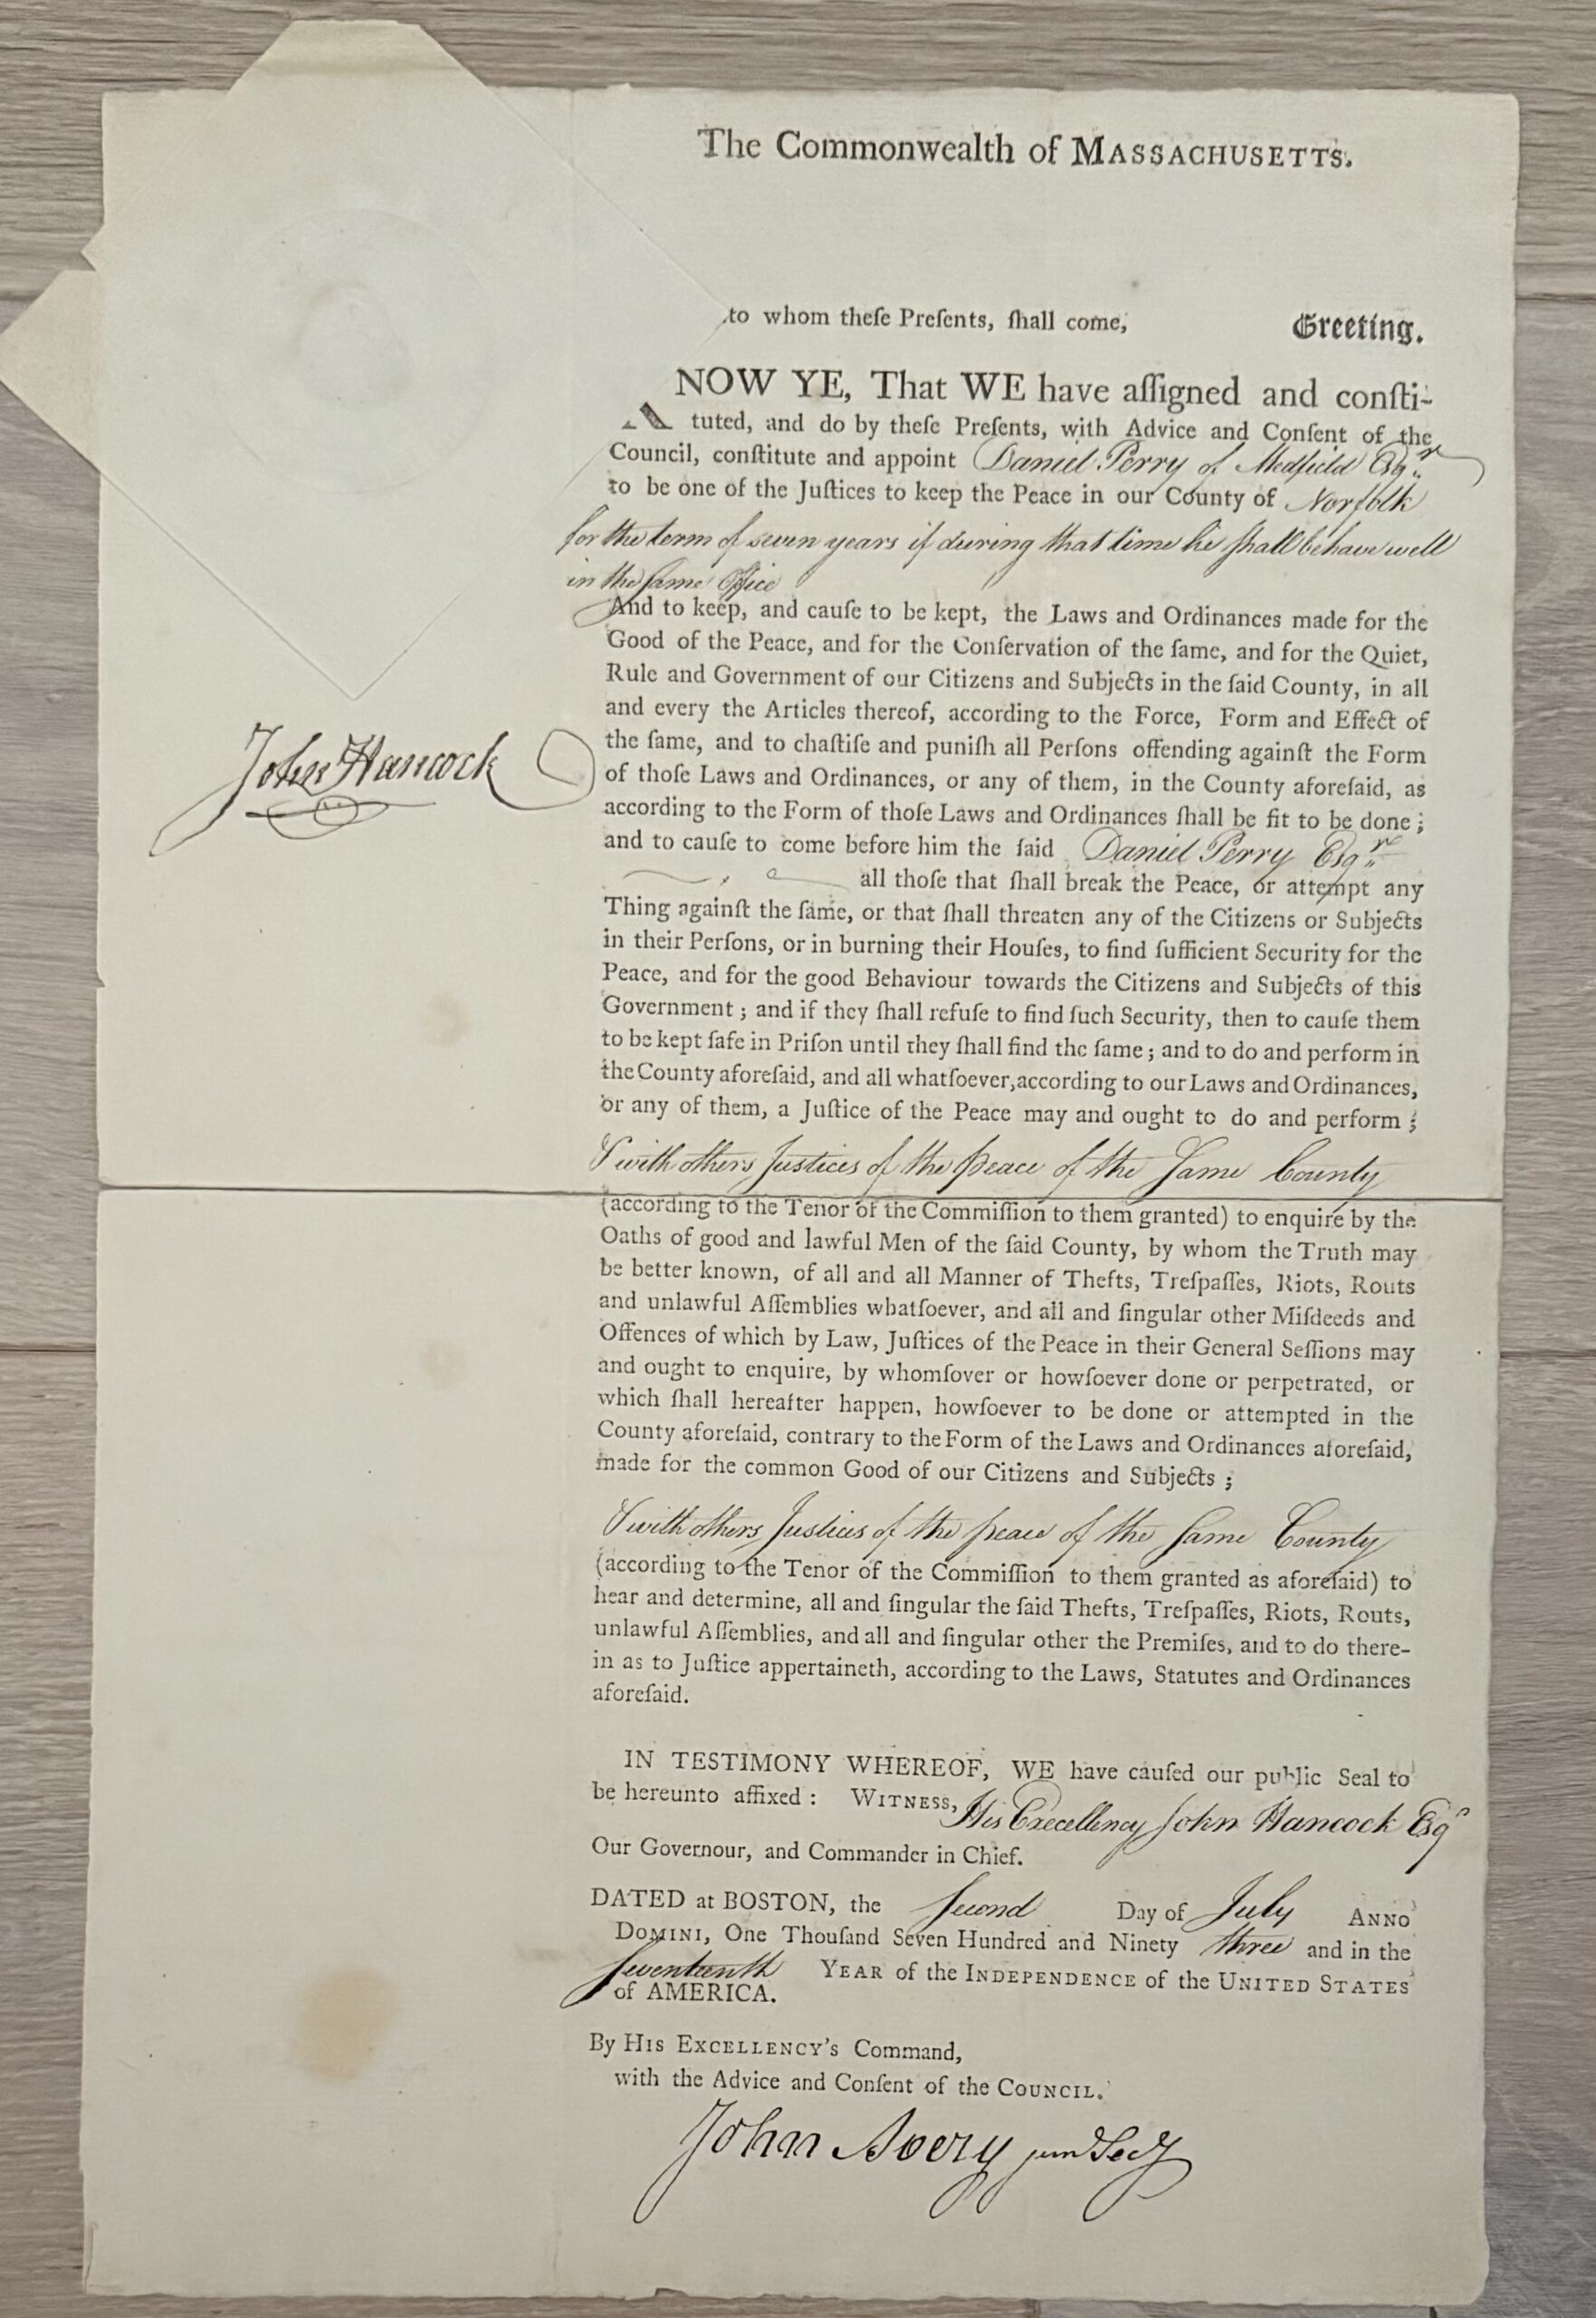 The Commonwealth of MASSACHUSETTS.
to whom theſe Preſents, ſhall come, Greeting.
NOW YE, That WE have aſſigned and conſti-
tuted, and do by theſe Preſents, with Advice and Conſent of the
Council, conſtitute and appoint Daniel Perry of Medfield Esqr
to be one of the Juſtices to keep the Peace in our County of Norfolk
for the term of seven years if during that time he ſhall behave well
in the ſame Office
And to keep, and cauſe to be kept, the Laws and Ordinances made for the
Good of the Peace, and for the Conſervation of the ſame, and for the Quiet,
Rule and Government of our Citizens and Subjects in the ſaid County, in all
and every the Articles thereof, according to the Force, Form and Effect of
the ſame, and to chaſtiſe and puniſh all Perſons offending againſt the Form
John Hancock
of thoſe Laws and Ordinances, or any of them, in the County aforeſaid, as
according to the Form of thoſe Laws and Ordinances ſhall be fit to be done;
and to cauſe to come before him the ſaid Daniel Perry Esqr
all thoſe that ſhall break the Peace, or attempt any
Thing againſt the ſame, or that ſhall threaten any of the Citizens or Subjects
in their Perſons, or in burning their Houſes, to find ſufficient Security for the
Peace, and for the good Behaviour towards the Citizens and Subjects of this
Government; and if they ſhall refuſe to find ſuch Security, then to cauſe them
to be kept ſafe in Priſon until they ſhall find the ſame; and to do and perform in
the County aforeſaid, and all whatſoever, according to our Laws and Ordinances,
or any of them, a Juſtice of the Peace may and ought to do and perform;
& with others Justices of the peace of the Same County
(according to the Tenor of the Commiſſion to them granted) to enquire by the
Oaths of good and lawful Men of the ſaid County, by whom the Truth may
be better known, of all and all Manner of Thefts, Treſpaſſes, Riots, Routs
and unlawful Aſſemblies whatſoever, and all and ſingular other Miſdeeds and
Offences of which by Law, Juſtices of the Peace in their General Seſſions may
and ought to enquire, by whomſover or howſoever done or perpetrated, or
which ſhall hereafter happen, howſoever to be done or attempted in the
County aforeſaid, contrary to the Form of the Laws and Ordinances aforeſaid,
made for the common Good of our Citizens and Subjects;
& with others Justices of the peace of the ſame County
(according to the Tenor of the Commiſſion to them granted as aforeſaid) to
hear and determine, all and ſingular the ſaid Thefts, Treſpaſſes, Riots, Routs,
unlawful Aſſemblies, and all and ſingular other the Premiſes, and to do there-
in as to Juſtice appertaineth, according to the Laws, Statutes and Ordinances
aforeſaid.
IN TESTIMONY WHEREOF, WE have cauſed our public Seal to
be hereunto affixed: WITNESS, His Excellency John Hancock Esqr
Our Governour, and Commander in Chief.
DATED at BOSTON, the Second Day of July ANNO
DOMINI, One Thouſand Seven Hundred and Ninety three and in the
Seventeenth YEAR of the INDEPENDENCE of the UNITED STATES
of AMERICA.
By HIS EXCELLENCY's Command,
with the Advice and Conſent of the COUNCIL.
John Avery jun Secy